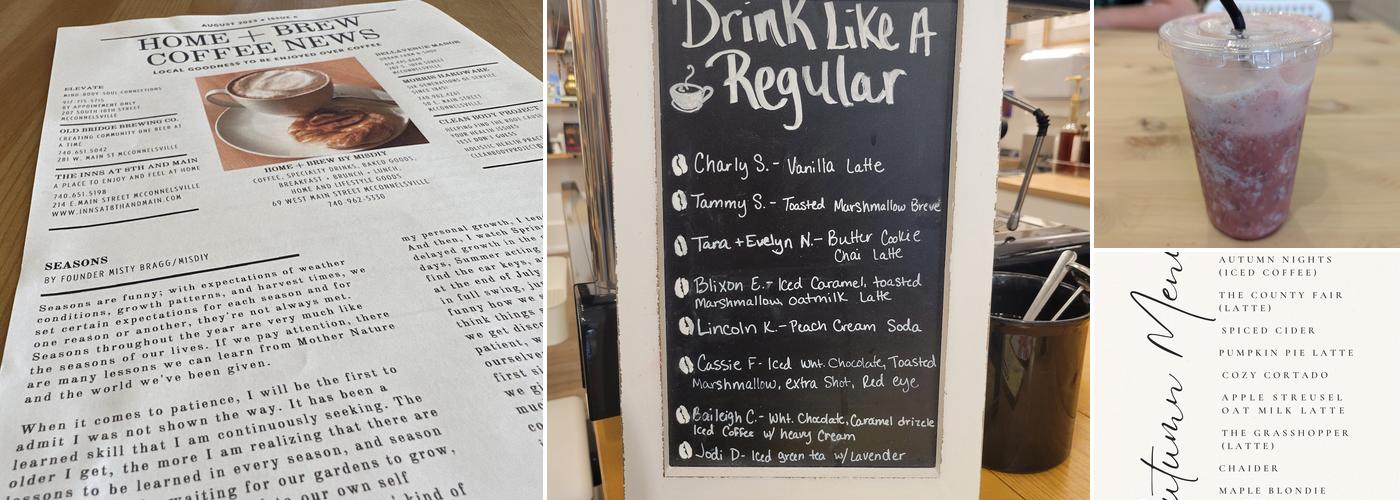 AUGUST 2023 • ISSUE 6
HOME + BREW
COFFEE NEWS
LOCAL GOODNESS TO BE ENJOYED OVER COFFEE
ELEVATE
MIND-BODY-SOUL CONNECTIONS
BY APPOINTMENT ONLY
207 SOUTH 10TH STREET
MCCONNELSVILLE
OLD BRIDGE BREWING CO.
CREATING COMMUNITY ONE BEER AT
A TIME
740.651.5042
281 W. MAIN ST MCCONNELSVILLE
THE INNS AT 8TH AND MAIN
A PLACE TO ENJOY AND FEEL AT HOME
740.651.5198
214 E.MAIN STREET MCCONNELSVILLE
WWW.INNSAT8THANDMAIN.COM
HOME + BREW BY MISDIY
COFFEE, SPECIALTY DRINKS, BAKED GOODS,
BREAKFAST + BRUNCH + LUNCH,
HOME AND LIFESTYLE GOODS
69 WEST MAIN STREET MCCONNELSVILLE
740-962-5330
BELLAVENUE MANOR
URBAN FARM & SHOP
MCCONNELSVILLE
MORRIS HARDWARE
SIX GENERATIONS OF SERVICE
SINCE 1845!
740.962.4261
50 E. MAIN STREET
MCCONNELSVILLE
CLEAN BODY PROJECT
HELPING FIND THE ROOT CAUSE
YOUR HEALTH ISSUES
TEST DON'T GUESS
HOLISTIC HEALTH
SEASONS
BY FOUNDER MISTY BRAGG/MISDIY
Seasons are funny; with expectations of weather
conditions, growth patterns, and harvest times, we
set certain expectations for each season and for
one reason or another, they're not always met.
Seasons throughout the year are very much like
the seasons of our lives. If we pay attention, there
are many lessons we can learn from Mother Nature
and the world we've been given.
When it comes to patience, I will be the first to
admit I was not shown the way. It has been a
learned skill that I am continuously seeking. The
older I get, the more I am realizing that there are
lessons to be learned in every season, and season
waiting for our gardens to grow,
our own self
kind of
my personal growth, I
And then, I watch
delayed growth in the
days, Summer acting
find the car keys,
at the end of July
in full swing; jus
funny how we s
think things
we get disco
patient, w
ourselve
first si
we gi
muc
co
Drink Like A
Regular
Charly S. - Vanilla Latte
Tammy S. - Toasted Marshmallow Breve
Tara + Evelyn N. - Butter Cookie
Chai Latte
Blixon E. - Iced Caramel, toasted
Marshmallow, oatmilk Latte
Lincoln K - Peach Cream Soda
Cassie F - Iced Wht. Chocolate, Toasted
Marshmallow, extra Shot, Red eye
Baileigh C. - Wht. Chocolate, Caramel drizzle
Iced Coffee w/ heavy Cream
Jodi D - Iced green tea w/ Lavender
Autumn Menu
AUTUMN NIGHTS
(ICED COFFEE)
THE COUNTY FAIR
(LATTE)
SPICED CIDER
PUMPKIN PIE LATTE
COZY CORTADO
APPLE STREUSEL
OAT MILK LATTE
THE GRASSHOPPER
(LATTE)
CHAIDER
MAPLE BLONDIE